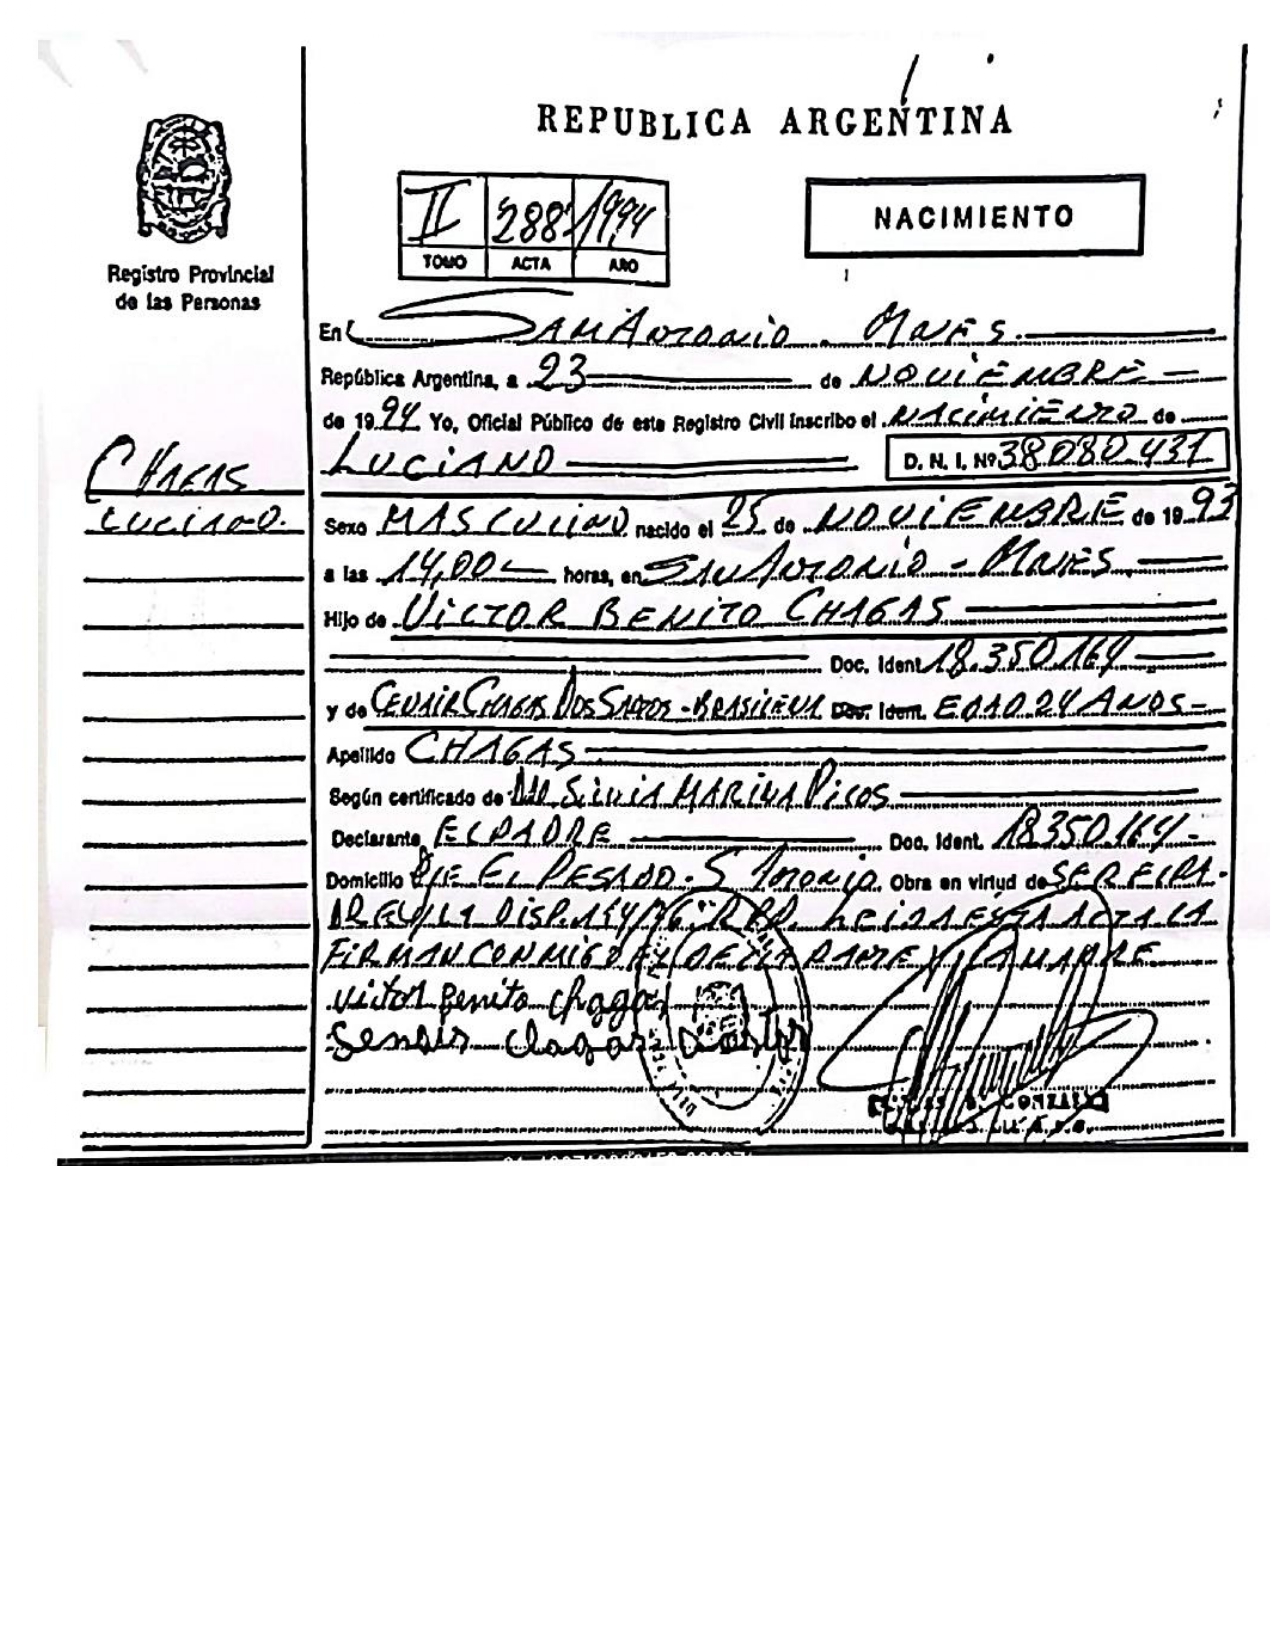 REPUBLICA ARGENTINA
II 288 1994
TOMO ACTA AÑO
NACIMIENTO
Registro Provincial
de las Personas
En San Antonio Mnes.
República Argentina, a 23 de NOVIEMBRE
de 1994 Yo, Oficial Público de este Registro Civil inscribo el NACIMIENTO de
LUCIANO D. N. I. Nº 38.080.431
CHAGAS
LUCIANO.
Sexo MASCULINO nacido el 25 de NOVIEMBRE de 1993
a las 14,00 horas, en San Antonio - Mnes
Hijo de VICTOR BENITO CHAGAS
Doc. Ident. 18.350.164
y de CHAGAS DOS SANTOS - BRASILEÑA Doc. Ident. EDAD 24 AÑOS
Apellido CHAGAS
Según certificado de SILVIA MARINA PICOS
Declarante EL PADRE Doc. Ident. 18350.164
Domicilio PJE EL PESADO. S. Antonio Obra en virtud de
LEIDA ESTA ACTA LA
FIRMAN CONMIGO EL DECLARANTE Y LA MADRE
Victor Benito chagas
GONZALEZ